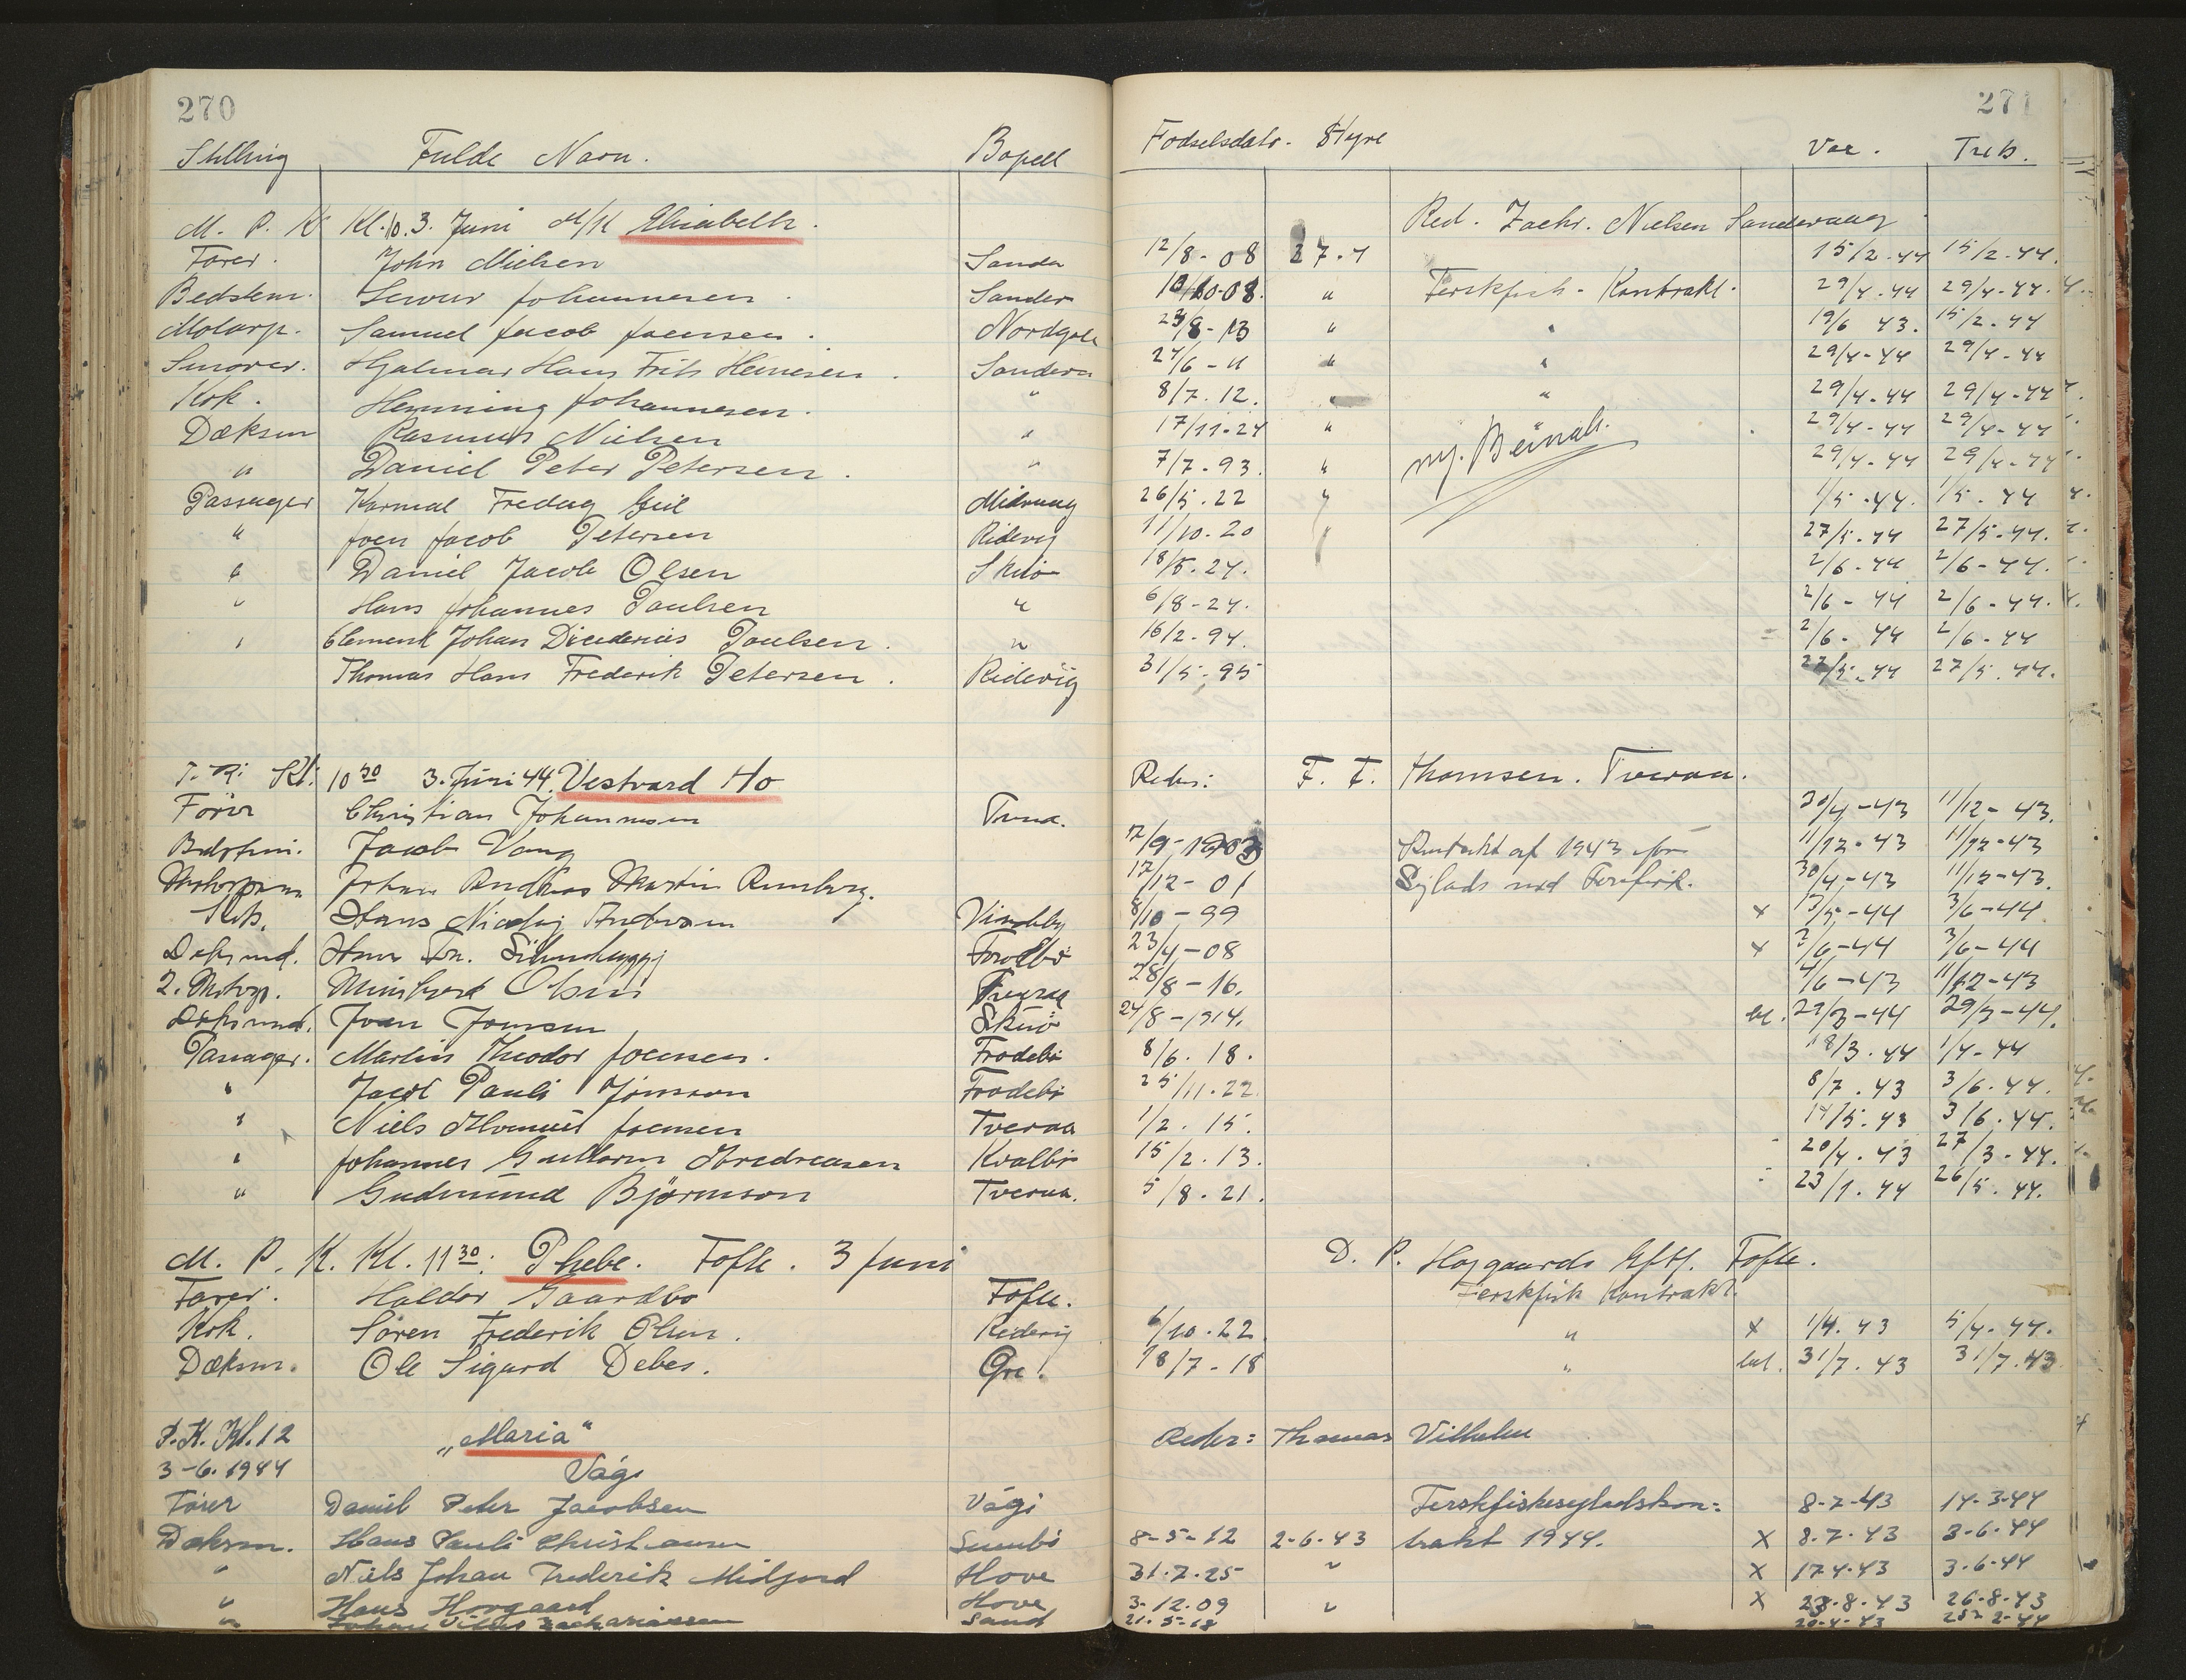 270
271
Stilling Fulde Navn. Bopæl Fødselsdato. Hyre Var. Treb.
M. P. K Kl. 10. 3. Juni M/K Elisabeth. Red. Zachr. Nielsen Sandevaag
Fører. John Nielsen Sanda 12/8-08 27.4 15/2.44 15/2.44.
Bedstem. Johannesen. Sander 10-08. " Ferskfisk-Kontrakt. 29/4.44 29/4-44.
Motorp. Samuel Jacob Joensen. Nordgøte 23/8-13 " " 19/6 43. 15/2-44
Smører. Hjalmar Hans Frits Heinesen. Sanderv 27/6-11 " " 29/4-44 29/4-44
Kok. Henning Johannesen. " 8/7.12. " 29/4-44 29/4-44
Dæksm Rasmus Nielsen " 17/11-24 " 29/4-44 29/4-44
" Daniel Peter Petersen. " 7/7-93. " 29/4-44 29/4-44
Passager Kormal Fredag Midvaag 26/5.22 " 1/5-44. 1/5.44
" Joen Jacob Petersen Ridevig 11/10.20 27/5.44 27/5-44.
" Daniel Jacob Olsen Skuø 18/5.24. 2/6-44 2/6-44.
" Hans Johannes Poulsen " 6/8-24. 2/6-44 2/6-44.
" Clement Johan Diederius Poulsen. " 16/2-94. 2/6-44 2/6-44
Thomas Hans Frederik Petersen. Ridevig 31/5-95 27/5-44 27/5.44.
Kl. 10 30 3. Juni 44. Vestvard Ho Reder: F. T. Thomsen. Tveraa.
Fører Christian Johannesen Tvera. 30/4-43 11/12-43.
Bedstem. Jacob Vang 12/9-1903 Kontrakt af 1943 for 11/12-43 11/12-43
Motorpass Johan Andreas Martin Runberg. 17/12-01 Sejlads med Ferskfisk. 30/4-43 11/12-43.
Hans Nicolaj Andersen 8/10-99 x 3/6-44
Deksmd. Hans Frodbø 23/4-08 x 2/6-44 3/6-44
2. Motorp. Olsen Tveraa 28/8-16. 4/6-43 11/12-43
Deksmd. Joen Joensen Skuø 24/8-1914. 29/3-44 29/3-44.
Passager. Martin Theodor Joensen. Frodebø 8/6.18. 18/3.44 1/4-44
" Jacob Pauli Jönsson Frodebø 25/11.22 8/7.43 3/6.44.
" Niels Joensen Tveraa 1/2.15. 14/5.43 3/6.44.
" Johannes Guttorm Andreasen Kvalbø 15/2.13. 20/4.43 27/3-44.
" Gudmund Björnson Tveraa. 5/8.21. 23/1.44 26/5.44.
M. P. K. Kl. 11 30: Phebe. Tofte. 3 Juni D. P. Højgaards Eftf. Tofte.
Fører. Haldor Gaardbo Tofte. Ferskfisk Kontrakt.
Kok. Sören Frederik Olsen. Riderig 6/10.22 " x 1/4.43 5/4-44.
Dæksm. Ole Sigurd Debes. Gje! 18/7-18 " 31/7.43 31/7.43
P. K. Kl. 12 „Maria“ Reder: Thomas Vilhelm
3-6.1944 Vági
Fører Daniel Peter Jacobsen Vági Ferskfiskesejladskon= 8-7-43 14-3-44
Dæksm. Hans Pauli Christiansen Sumbö 8-5-12 2-6.43 trakt 1944. X 8.7.43 3-6.44
" Niels Johan Frederik Midjord Hove 31.7.25 " X 17.4.43 3.6.44
" Hans Horgaard Hove 3-12.09 " X 23.8.43 26.8.43
" Johan Zachariassen Sand 21.5-18 20-4-43 25-2-44